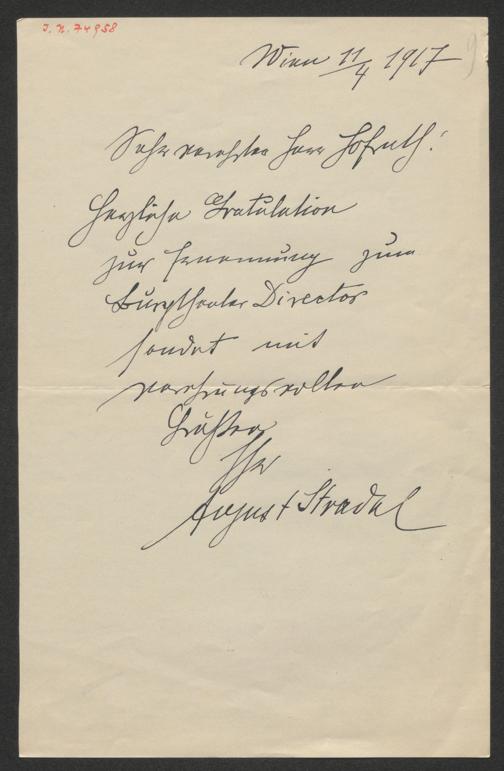 I.N. 74958
Wien 11/4 1917
Sehr verehrter Herr Hofrath!
Herzliche Gratulation
zur Ernennung zum
Burgtheater Director
sendet mit
verehrungsvollen
Grüßen
Ihr
August Stradal